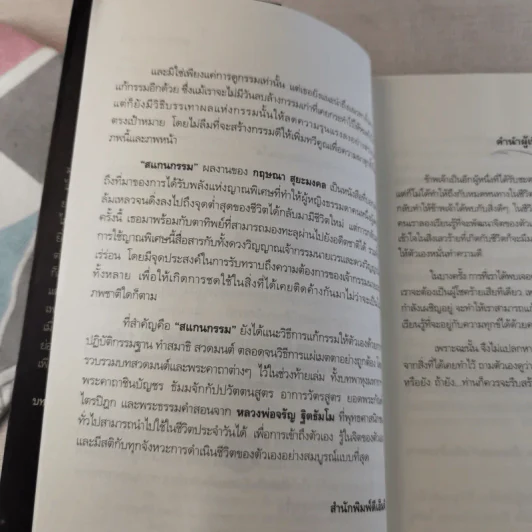 และมิใช่เพียงแค่การดูกรรมเท่านั้น แต่เธอยังแนะนำถึง
แก้กรรมอีกด้วย ซึ่งแม้เราจะไม่มีวันลบล้างกรรมเก่าที่เคยกระทำไว้ได้
แต่ก็ยังมีวิธีบรรเทาผลแห่งกรรมนั้น ให้ลดความรุนแรงลงอย่าง
ตรงเป้าหมาย โดยไม่ลืมที่จะสร้างกรรมดีให้เพิ่มทวีคูณเพื่อความ
ภพนี้และภพหน้า
"สแกนกรรม" ผลงานของ กฤษณา สุยะมงคล เป็นหนังสือที่
ถึงที่มาของการได้รับพลังแห่งญาณพิเศษที่ทำให้ผู้หญิงธรรมดาคนหนึ่ง
ล้มเหลวจนดิ่งลงไปถึงจุดต่ำสุดของชีวิตได้กลับมามีชีวิตใหม่ แต่การกลับ
ครั้งนี้ เธอมาพร้อมกับตาทิพย์ที่สามารถมองทะลุผ่านไปยังอดีตชาติได้
การใช้ญาณพิเศษนี้สื่อสารกับทั้งดวงวิญญาณเจ้ากรรมนายเวรและดวงวิญญาณ
เร่ร่อน โดยมีจุดประสงค์ในการรับทราบถึงความต้องการของเจ้ากรรมนายเวร
ทั้งหลาย เพื่อให้เกิดการชดใช้ในสิ่งที่ได้เคยติดค้างกันมาไม่ว่าจะเป็น
ภพชาติใดก็ตาม
ที่สำคัญคือ "สแกนกรรม" ยังได้แนะวิธีการแก้กรรมให้ตัวเองด้วยการ
ปฏิบัติกรรมฐาน ทำสมาธิ สวดมนต์ ตลอดจนวิธีการแผ่เมตตาอย่างถูกต้อง โดย
รวบรวมบทสวดมนต์และพระคาถาต่างๆ ไว้ในช่วงท้ายเล่ม ทั้งบทพาหุงมหากา
พระคาถาชินบัญชร ธัมมจักกัปปวัตตนสูตร อาการวัตรสูตร ยอดพระกัณฑ์
ไตรปิฎก และพระธรรมคำสอนจาก หลวงพ่อจรัญ ฐิตธัมโม ที่พุทธศาสนิกชน
ทั่วไปสามารถนำไปใช้ในชีวิตประจำวันได้ เพื่อการเข้าถึงตัวเอง รู้ในจิตของตัวเอง
และมีสติกับทุกจังหวะการดำเนินชีวิตของตัวเองอย่างสมบูรณ์แบบที่สุด
สำนักพิมพ์ดีเอ็มจี
คำนำผู้เขียน
ข้าพเจ้าเป็นอีกผู้หนึ่งที่ได้รับ
แต่ก็ไม่ได้ทำให้ถึงกับหมดหนทางในชีวิต
กลับทำให้ข้าพเจ้าได้พบกับสิ่งดีๆ ในชีวิต
เราลองเรียนรู้ที่จะพัฒนาจิตของตัวเอง
เข้าใจในสิ่งเลวร้ายที่เกิดกับชีวิตก็จะ
ให้ตัวเองพ้นแห่งความทุกข์
ในบางครั้ง การที่เราได้พบเจอ
เราจะต้องเป็นผู้โชคร้ายเสียทีเดียว
กำลังเผชิญอยู่ จะทำให้เราสามารถ
เรียนรู้ที่จะอยู่กับความทุกข์ได้ด้วย
เพราะฉะนั้น จึงไม่แปลกหาก
จากสิ่งที่ได้เคยทำไว้ ถามตัวเองดูว่า
หรือยัง ถ้ายัง...ท่านก็ควรจะรีบ